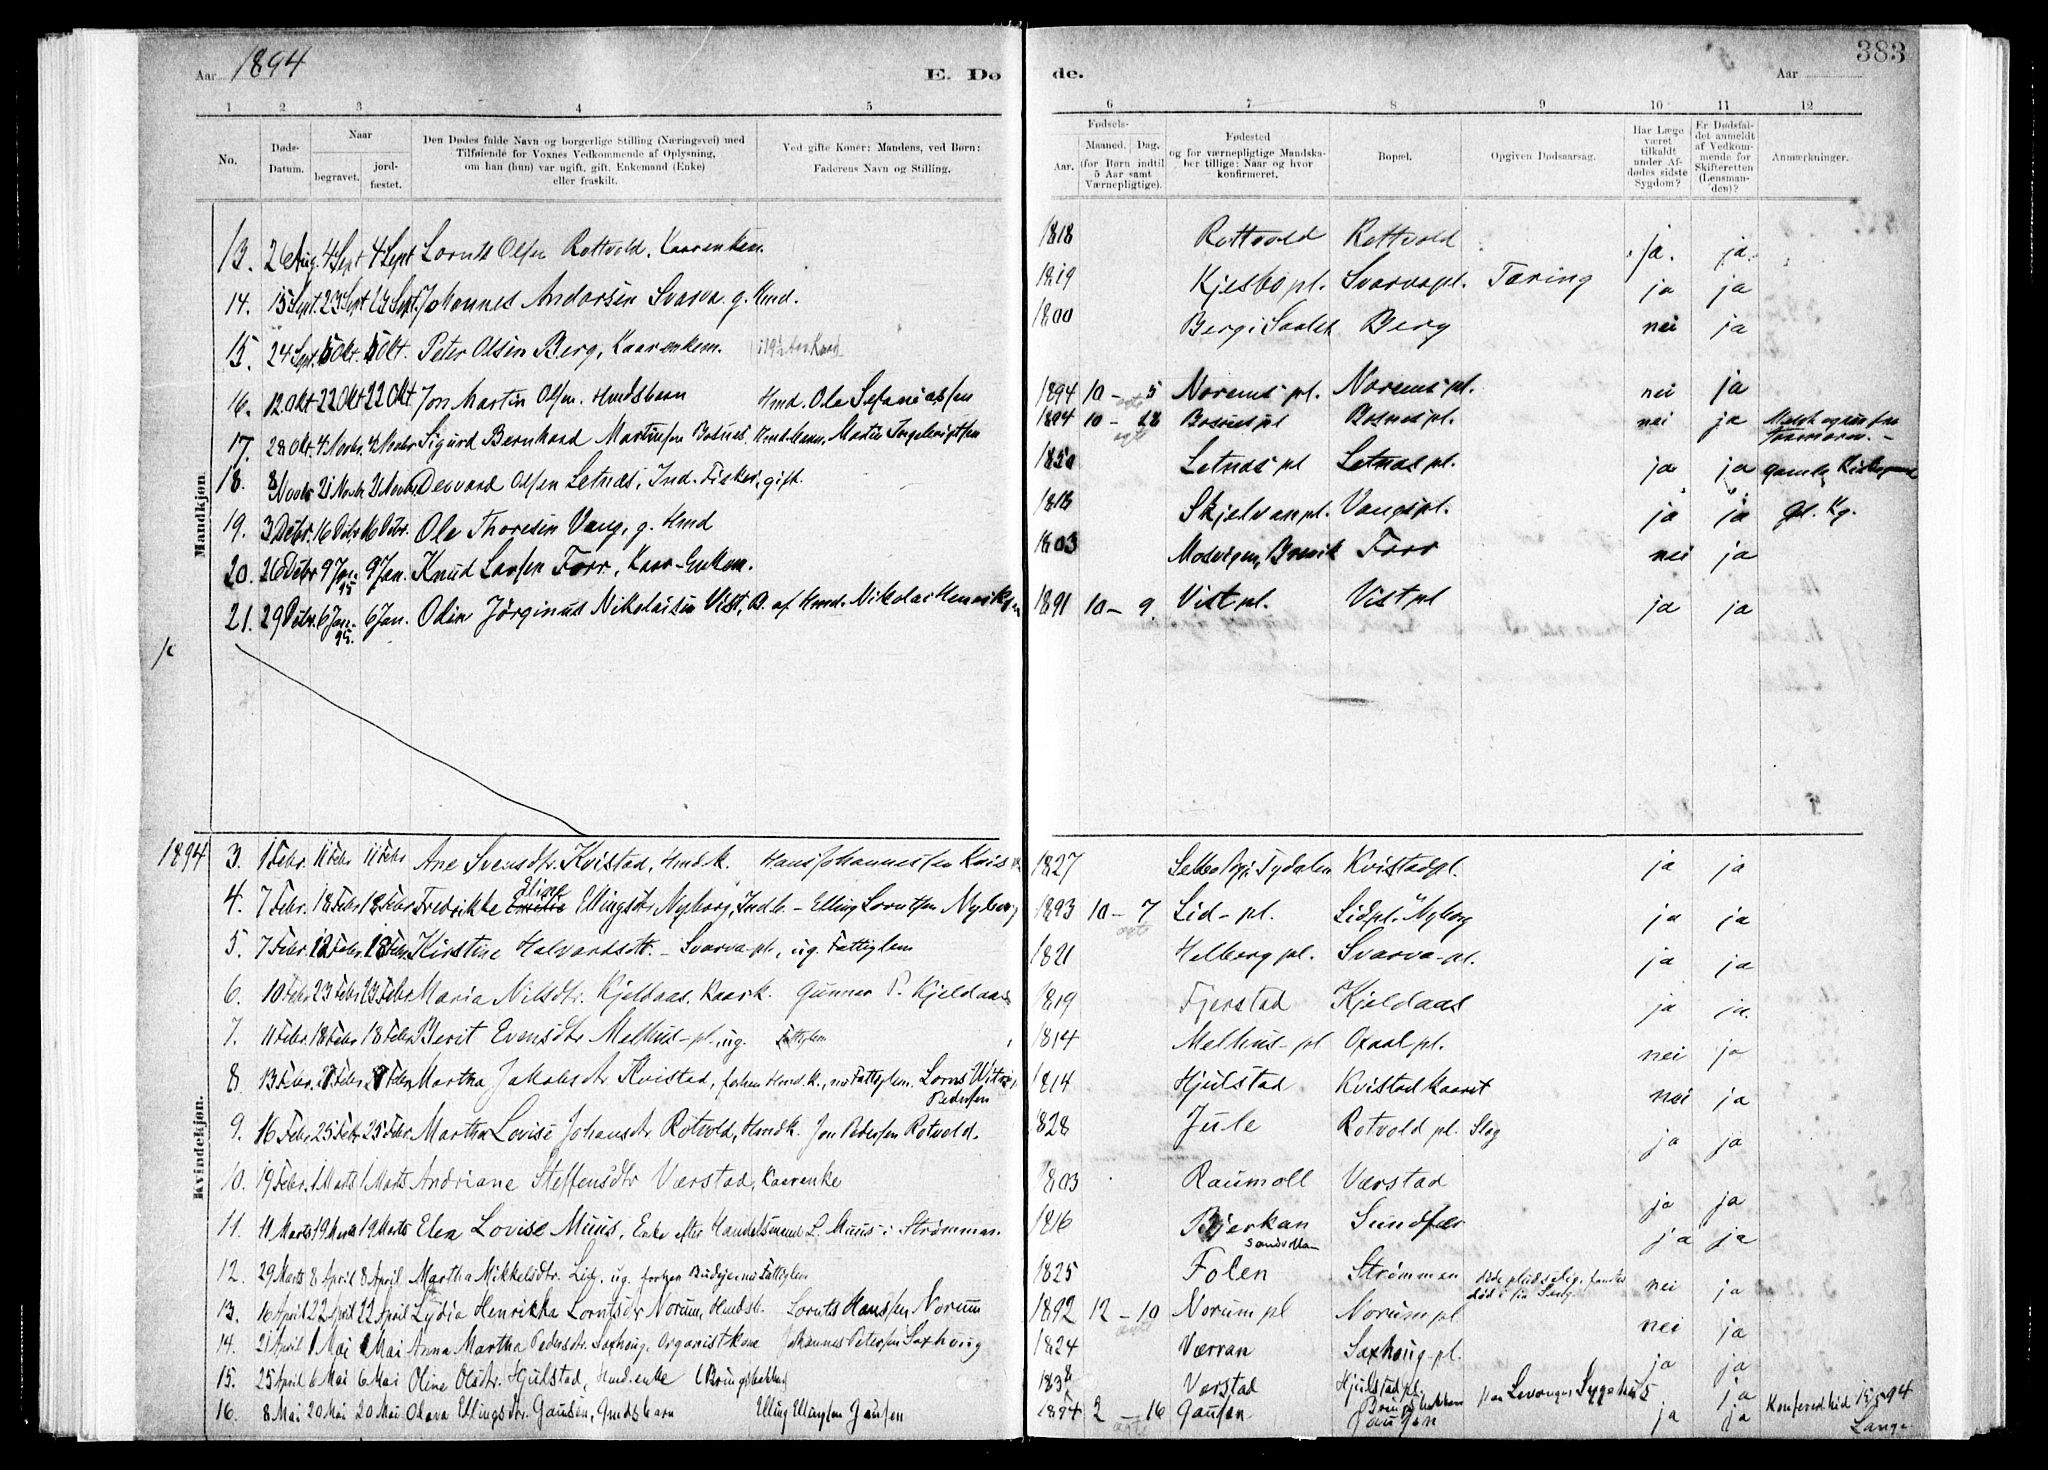 Aar 1894 E. Dø de. Aar 383
1 2 3 4 5 6 7 8 9 10 11 12
No. Døds-Datum. Naar begravet. jord-fæstet. Den Dødes fulde Navn og borgerlige Stilling (Næringsvei) med Tilføiende for Voxnes Vedkommende af Oplysning, om han (hun) var ugift, gift, Enkemand (Enke) eller fraskilt. Ved gifte Koner: Mandens, ved Børn: Faderens Navn og Stilling. Fødsels- Aar. Maaned. Dag. (for Børn indtil 5 Aar samt Værnepligtige). Fødested og for værnepligtige Mandska-ber tillige: Naar og hvor konfirmeret. Bopæl. Opgiven Dødsaarsag. Har Læge været tilkaldt under Af-dødes sidste Sygdom? Er Dødsfal-det anmeldt af Vedkom-mende for Skifteretten (Lensman-den)? Anmærkninger.
Mandkjøn.
13. 26 Aug. 4 Sept 4 Sept Lornts Olsen Rottvold, Kaarenkem. 1818 Rottvold Rottvold ja. ja.
14. 15 Sept. 23 Sept 23 Sept. Johannes Andersen Svarva g. Hmd. 1819 Kjesbo pl. Svarva pl. Tæring ja ja
15. 24 Sept. 5 Okt. 5 Okt. Peter Olsen Berg, Kaarenkem. 1800 Berg i Berg nei ja
16. 12 Okt 22 Okt 22 Okt Jon Martin Olsen Hmdsbarn Hmd. Ole Sefaniassen 1894 10 - 5 Norems pl. Norems pl. nei ja
17. 28 Okt. 4 Novbr. 4 Novbr Sigurd Bernhard Martinsen Bosnes. Martin Ingebrigtsen 1894 10 - 28 Bosnes pl Bosnes pl. nei ja
18. 8 Novbr 21 Novbr 21 Novbr Olsen Letnæs, Ind. Fisker, gift. 1850 Letnæs pl Letnæs pl. ja ja gamle
19. 3 Debr. 16 Debr 16 Debr. Ole Thoresen Vang, g. Hmd 1818 pl. Vangs pl. ja ja gl. Kg.
20. 26 Debr 9 Jan. 95 9 Jan. Knud Larsen Forr, Kaar-Enkem. 1803 Forr nei ja
21. 29 Debr. 6 Jan. 95. 6 Jan. Odin Jørginus Nikolaisen Vist, B. af Hmd. Nikolai Henriksen 1891 10 - 9. Vist pl. Vist pl ja ja
Kvindekjøn.
1894 3. 1 Febr. 11 Febr 11 Febr Ane Svensdtr. Kvistad, Hmdk. Hans Johannessen Kvis 1827 Selbo Tydalen Kvistadpl. ja ja
4. 7 Febr. 18 Febr 18 Febr Fredrikke Eline Ellingsdtr Nyborg, Indb. - Elling Lorntsen Nyborg 1893 10 - 7 Lid - pl. Lidpl. Nyborg ja ja
5. 7 Febr. 18 Febr. 18 Febr Kirstine Halvardsdtr. - Svarva-pl., ug. Fattiglem 1821 Helberg pl. Svarva-pl. ja ja
6. 10 Febr 23 Febr 23 Febr Maria Nilsdtr. Kjeldaas, Kaark. Gunner P. Kjeldaas 1819 Fjerstad Kjeldaas ja ja.
7. 11 Febr. 18 Febr. 18 Febr Berit Evensdtr Melhus-pl. ug. Fattiglem 1814 Melhus-pl Oxaal pl. nei ja
8. 13 Febr. 27 Febr 27 Febr Martha Jakobsdtr Kvistad, forhen Hmdk., nu Fattiglem. Lornts Pedersen 1814 Hjulstad Kvistad Kaaret nei ja
9. 16 Febr 25 Febr 25 Febr. Martha Lovise Johansdtr Rotvold, Hmdk. Jon Pedersen Rotvold. 1828 Jule Rotvold pl. Slag ja ja
10. 19 Febr. 1 Marts 1 Marts Andriane Steffensdtr Værstad, Kaarenke 1803 Raumoll Værstad ja ja
11. 11 Marts 19 Marts 19 Marts Elen Lovise Muus, Enke efter Handelsmand L. Muus i Strømmen. 1816 Bjerkan Sandvollan Sundfær ja ja
12. 29 Marts 8 April 8 April Martha Mikkelsdtr. Lid, ug. forhen Budeje nu Fattiglem 1825 Folen Strømmen døde pludselig. fandtes død i sin Seng nei ja
13. 16 April 22 April 22 April Lydia Henrikka Lorntsdtr Norum, Hmdsb. Lornts Hansen Norum 1892 12 - 10 Norum pl Norum pl nei ja
14. 21 April 1 Mai 1 Mai Anna Martha Pedersdtr. Saxhoug. Organistkone Johannes Petersen Saxhoug 1824 Værran Saxhoug-pl. ja ja
15. 25 April 6 Mai 6 Mai Oline Olsdtr. Hjulstad, Hmd.enke (Bringsbakken) Værstad Hjulstad pl. Bringsbakken paa Levanger Sygehus ja
16. 8 Mai 20 Mai 20 Mai Olava Ellingsdtr. Gausen, Gmdsbarn Elling Ellingsen Gausen 1894 2 - 16 Gausen Gausen ja ja 15/5 94 Lange